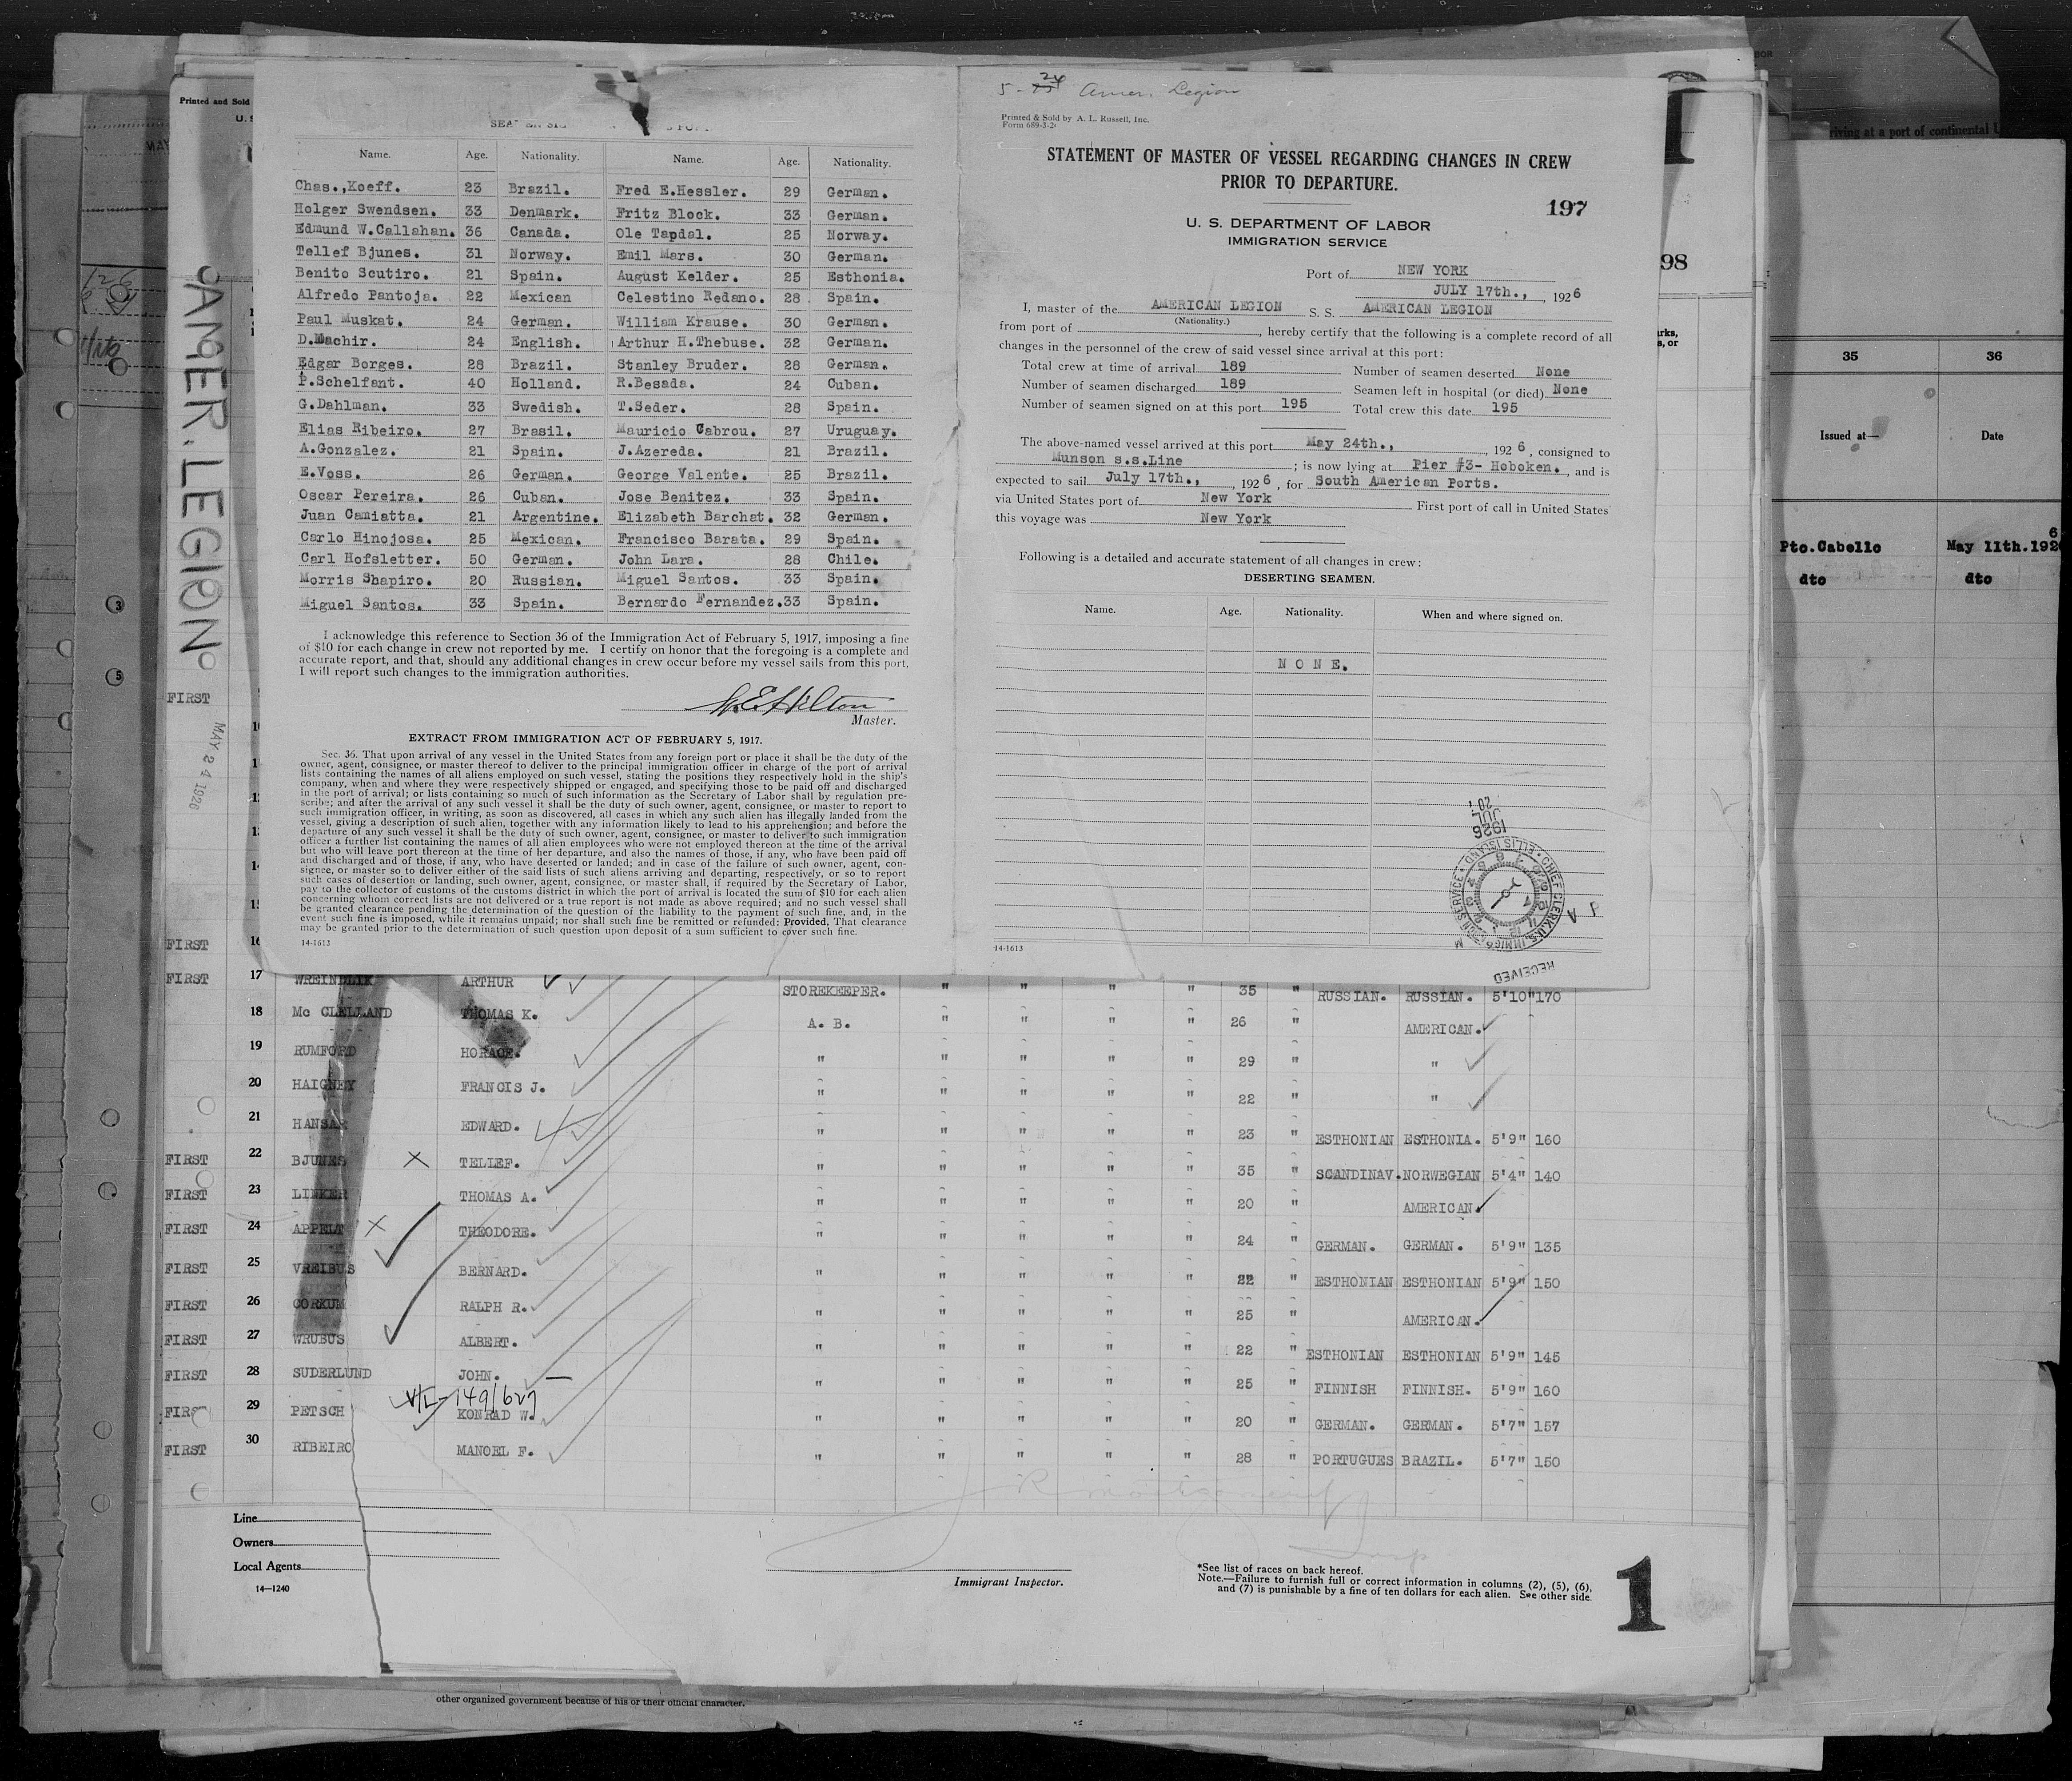 Printed and Sold
AMER. LEGION
MAY 24 1926
Name. Age. Nationality. Name. Age. Nationality.
Chas.,Koeff. 23 Brazil. Fred E.Hessler. 29 German.
Holger Swendsen. 33 Denmark. Fritz Block. 33 German.
Edmund W.Callahan. 36 Canada. Ole Tapdal. 25 Norway.
Tellef Bjunes. 31 Norway. Emil Mars. 30 German.
Benito Scutiro. 21 Spain. August Kelder. 25 Esthonia.
Alfredo Pantoja. 22 Mexican Celestino Redano. 28 Spain.
Paul Muskat. 24 German. William Krause. 30 German.
D.Machir. 24 English. Arthur H.Thebuse. 32 German.
Edgar Borges. 28 Brazil. Stanley Bruder. 28 German.
P.Schelfant. 40 Holland. R.Besada. 24 Cuban.
G.Dahlman. 33 Swedish. T.Seder. 28 Spain.
Elias Ribeiro. 27 Brasil. Mauricio Cabrou. 27 Uruguay.
A.Gonzalez. 21 Spain. J.Azereda. 21 Brazil.
E.Voss. 26 German. George Valente. 25 Brazil.
Oscar Pereira. 26 Cuban. Jose Benitez. 33 Spain.
Juan Camiatta. 21 Argentine. Elizabeth Barchat. 32 German.
Carlo Hinojosa. 25 Mexican. Francisco Barata. 29 Spain.
Carl Hofsletter. 50 German. John Lara. 28 Chile.
Morris Shapiro. 20 Russian. Miguel Santos. 33 Spain.
Miguel Santos. 33 Spain. Bernardo Fernandez. 33 Spain.
I acknowledge this reference to Section 36 of the Immigration Act of February 5, 1917, imposing a fine
of $10 for each change in crew not reported by me. I certify on honor that the foregoing is a complete and
accurate report, and that, should any additional changes in crew occur before my vessel sails from this port,
I will report such changes to the immigration authorities.
Master.
EXTRACT FROM IMMIGRATION ACT OF FEBRUARY 5, 1917.
Sec. 36. That upon arrival of any vessel in the United States from any foreign port or place it shall be the duty of the
owner, agent, consignee, or master thereof to deliver to the principal immigration officer in charge of the port of arrival
lists containing the names of all aliens employed on such vessel, stating the positions they respectively hold in the ship's
company, when and where they were respectively shipped or engaged, and specifying those to be paid off and discharged
in the port of arrival; or lists containing so much of such information as the Secretary of Labor shall by regulation pre-
scribe; and after the arrival of any such vessel it shall be the duty of such owner, agent, consignee, or master to report to
such immigration officer, in writing, as soon as discovered, all cases in which any such alien has illegally landed from the
vessel, giving a description of such alien, together with any information likely to lead to his apprehension; and before the
departure of any such vessel it shall be the duty of such owner, agent, consignee, or master to deliver to such immigration
officer a further list containing the names of all alien employees who were not employed thereon at the time of the arrival
but who will leave port thereon at the time of her departure, and also the names of those, if any, who have been paid off
and discharged and of those, if any, who have deserted or landed; and in case of the failure of such owner, agent, con-
signee, or master so to deliver either of the said lists of such aliens arriving and departing, respectively, or so to report
such cases of desertion or landing, such owner, agent, consignee, or master shall, if required by the Secretary of Labor,
pay to the collector of customs of the customs district in which the port of arrival is located the sum of $10 for each alien
concerning whom correct lists are not delivered or a true report is not made as above required; and no such vessel shall
be granted clearance pending the determination of the question of the liability to the payment of such fine, and, in the
event such fine is imposed, while it remains unpaid; nor shall such fine be remitted or refunded: Provided, That clearance
may be granted prior to the determination of such question upon deposit of a sum sufficient to cover such fine.
14-1613
5 - 24 Amer. Legion
Printed & Sold by A. L. Russell, Inc.
Form 689-3-2
STATEMENT OF MASTER OF VESSEL REGARDING CHANGES IN CREW
PRIOR TO DEPARTURE.
197
U. S. DEPARTMENT OF LABOR
IMMIGRATION SERVICE
Port of NEW YORK
JULY 17th., , 1926
I, master of the AMERICAN LEGION S. S. AMERICAN LEGION
(Nationality.)
from port of , hereby certify that the following is a complete record of all
changes in the personnel of the crew of said vessel since arrival at this port:
Total crew at time of arrival 189 Number of seamen deserted None
Number of seamen discharged 189 Seamen left in hospital (or died) None
Number of seamen signed on at this port 195 Total crew this date 195
The above-named vessel arrived at this port May 24th., , 1926, consigned to
Munson s.s.Line ; is now lying at Pier #3- Hoboken. , and is
expected to sail July 17th., , 1926, for South American Ports.
via United States port of New York First port of call in United States
this voyage was New York
Following is a detailed and accurate statement of all changes in crew:
DESERTING SEAMEN.
Name. Age. Nationality. When and where signed on.
N O N E.
1926 JUL 20
CHIEF CLERK U.S. IMMIGRATION SERVICE ELLIS ISLAND
RECEIVED
14-1613
98
riving at a port of continental U
35 36
Issued at— Date
Pto.Cabello May 11th.1926
dto dto
FIRST
FIRST 16
FIRST 17 WREINDLIK ARTHUR STOREKEEPER. " " " " 35 " RUSSIAN. RUSSIAN. 5'10" 170
18 Mc CLELLAND THOMAS K. A. B. " " " " 26 " AMERICAN.
19 RUMFORD HORACE. " " " " " 29 " "
20 HAIGNEY FRANCIS J. " " " " " 22 " "
21 HANSAR EDWARD. " " " " " 23 " ESTHONIAN ESTHONIA. 5'9" 160
FIRST 22 BJUNES TELLEF. " " " " " 35 " SCANDINAV. NORWEGIAN 5'4" 140
FIRST 23 LINKER THOMAS A. " " " " " 20 " AMERICAN.
FIRST 24 APPELT THEODORE. " " " " " 24 " GERMAN. GERMAN. 5'9" 135
FIRST 25 VREIBUS BERNARD. " " " " " 22 " ESTHONIAN ESTHONIAN 5'9" 150
FIRST 26 CORKUM RALPH R. " " " " " 25 " AMERICAN.
FIRST 27 WRUBUS ALBERT. " " " " " 22 " ESTHONIAN ESTHONIAN 5'9" 145
FIRST 28 SUDERLUND JOHN. " " " " " 25 " FINNISH FINNISH. 5'9" 160
149/627
FIRST 29 PETSCH KONRAD W. " " " " " 20 " GERMAN. GERMAN. 5'7" 157
FIRST 30 RIBEIRO MANOEL F. " " " " " 28 " PORTUGUES BRAZIL. 5'7" 150
Line
Owners
Local Agents
14—1240
Immigrant Inspector.
*See list of races on back hereof.
Note.—Failure to furnish full or correct information in columns (2), (5), (6),
and (7) is punishable by a fine of ten dollars for each alien. See other side.
1
other organized government because of his or their official character.